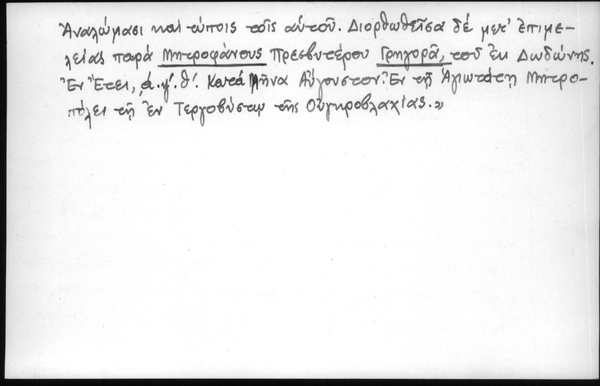 Ἀναλώμασι καὶ τύποις τοῖς αὐτοῦ. Διορθωθεῖσα δέ μετ' ἐπιμε-
λείας παρά Μητροφάνους Πρεσβυτέρου Γρηγορᾶ, τοῦ ἐκ Δωδώνης.
Ἐν Ἔτει, ͵α.ψ'.θ'. Κατά Μῆνα Αὔγουστον. Ἐν τῇ Ἁγιωτάτῃ Μητρο-
πόλει τῇ ἐν Τεργοβύστῳ τῆς Οὐγκροβλαχίας.»